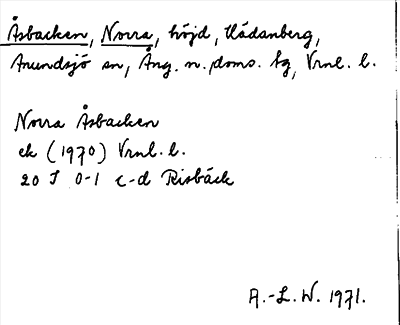 Åsbacken, Norra, höjd, Hädanberg,
Anundsjö sn, Ång. n. doms. tg, Vrnl. l.
Norra Åsbacken
ek (1970) Vrnl. l.
20 J 0-1 c-d Risbäck
A.-L. W. 1971.